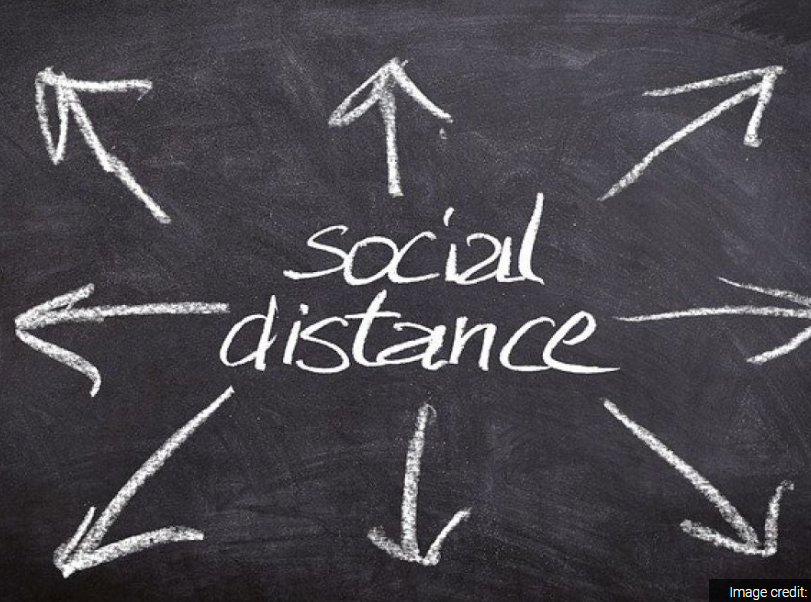 social
distance
Image credit: